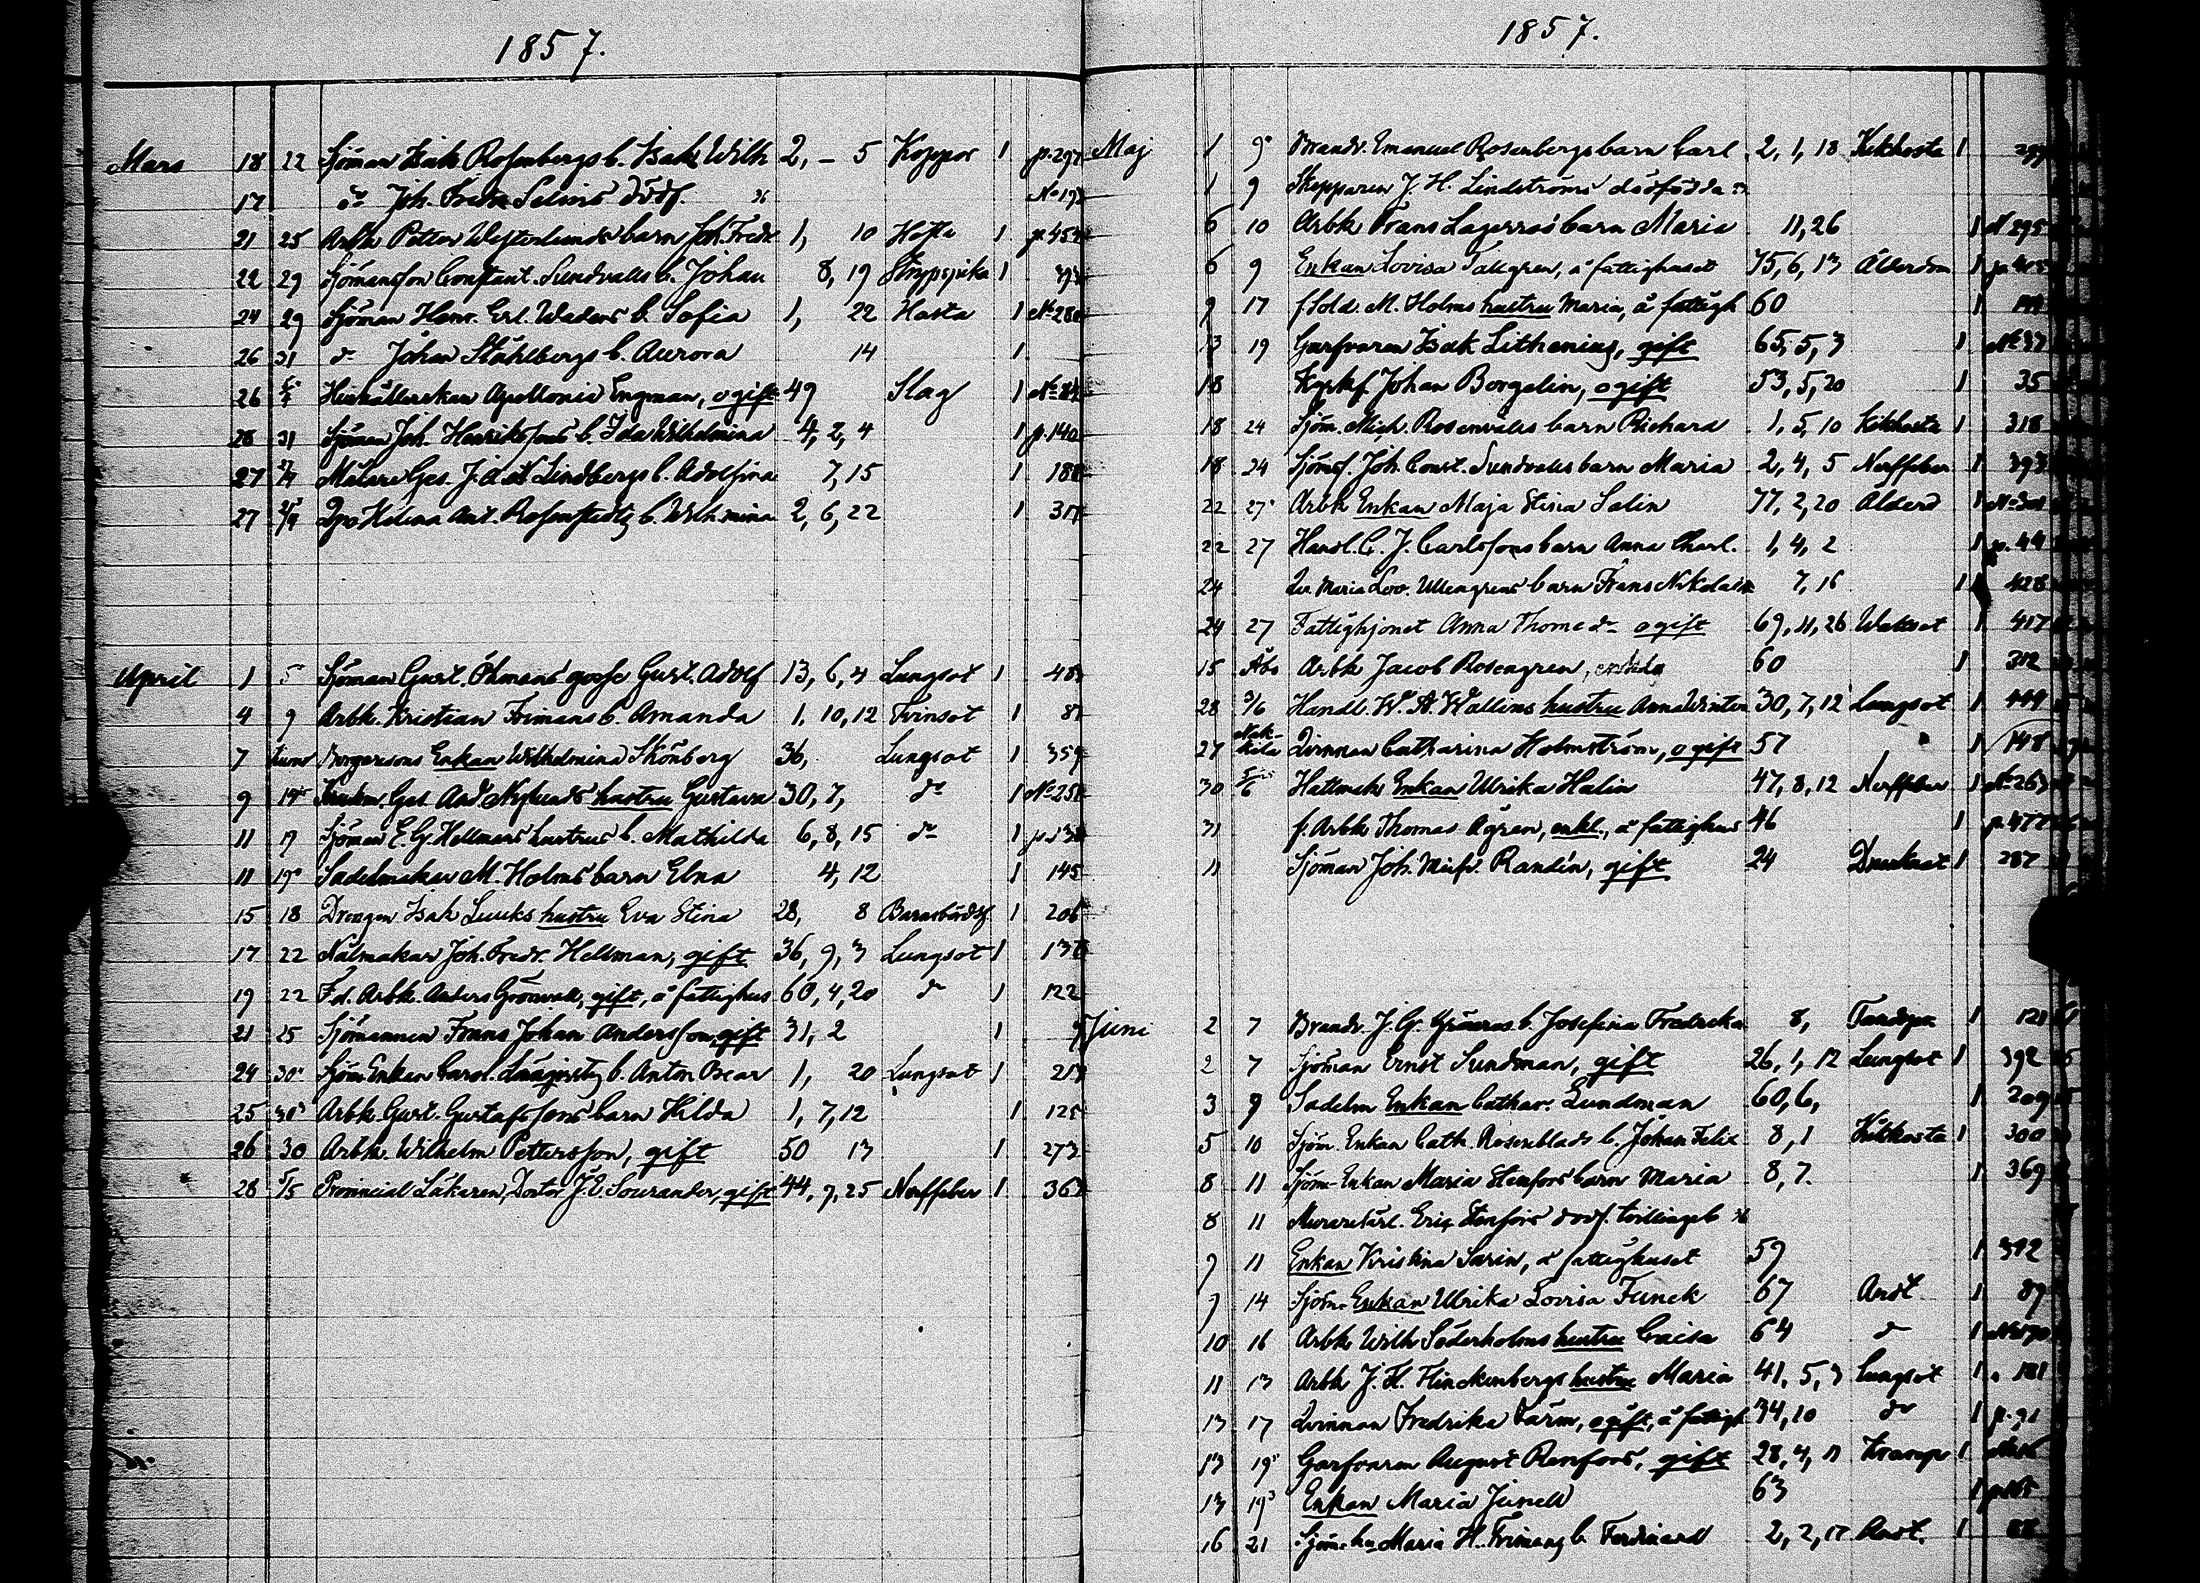 1857.
Mars 18 22 Sjöman Isak Rosenbergs b. Isak Wilh 2, – 5 Koppor 1 p. 297
17 do Joh. Fredr Selins dödf. No 197
21 25 Arbk Petter Westerlunds barn Joh. Fredr 1, 10 Hosta 1 p. 454
22 29 Sjömansson Constant. Sundvalls b. Johan 8, 19 Strypsjuka 1 393
24 29 Sjöman Henr. Erl. Waders b. Sofia 1, 22 Hosta 1 No 280
26 31 do Johan Ståhlbergs b. Aurora 14 1
26 Hushållerskan Apollonia Engman, ogift 49 Slag 1
28 31 Sjöman Joh. Henrikssons b. Ida Wilhelmina 4, 2, 4 1 p. 140
27 Målare Ges. Lindbergs b. Adolfina 7, 15 1 180
27 Ant. b. Wilh.mina 2, 6, 22 1
April 1 5 Sjöman Gust. Öhmans gosse Gust. Adolf 13, 6, 4 Lungsot 1
4 9 Arbk. Kristian Frimans b. Amanda 1, 10, 12 Tvinsot 1
7 Borgaresons Enkan Wilhelmina Skönberg 36, Lungsot 1 359
9 14 Ges. And. Nylunds hustru Gustava 30, 7, do 1
11 17 Sjöman E. G. Hellmans hustrus b. Mathilda 6, 8, 15 do 1
11 19 Sadelmakar M. Holms barn Elna 4, 12 1 145
15 18 Drengen Isak Luuks hustru Eva Stina 28, 8 Barnsbördsf. 1 206
17 22 Nålmakar Joh. Fredr. Hellman, gift 36, 9, 3 Lungsot 1 138
19 22 F.d. Arbk. Anders Grönvall, gift, å fattighus 60, 4, 20 do 1 122
21 25 Sjömannen Frans Johan Andersson, gift 31, 2 1
24 30 Sjöm. Enkan Carol. b. Anton Oscar 1, 20 Lungsot 1 217
25 30 Arbk Gust. Gustafssons barn Hilda 1, 7, 12 1 125
26 30 Arbk. Wilhelm Pettersson, gift 50 13 1 273
28 5/5 Provincial Läkaren, Doctor J. E. Sourander, gift 44, 7, 25 Nerffeber 1 363
1857.
Maj 1 9 Brandv. Emanuel Rosenbergs barn Carl 2, 1, 18 Kikhosta 1 297
1 9 Skepparen J. H. Lindströms dödfödda
6 10 Arbk Frans Lagerroos barn Maria 11, 26 1 No 295
6 9 Enkan Lovisa Tallgren, å fattighuset 75, 6, 13 Ålderdom 1
9 17 f. Sold. M. Holms hustru Maria, å fattigh 60 1
13 19 Garfvaren Isak Lithenius, gift 65, 5, 3 1 No 37
18 Johan Borgelin, ogift 53, 5, 20 1 35
18 24 Sjöm. Mich. Rosenvalls barn Richard 1, 5, 10 Kikhosta 1 318
18 24 Sjömsf. Joh. Const. Sundvalls barn Maria 2, 4, 5 Nerffeber 1 393
22 27 Arbk Enkan Maja Stina Salin 77, 2, 20 Ålderd 1
22 27 Handl. C. J. Carlssons barn Anna Charl. 1, 4, 2 1 p. 44
24 Maria Lov. Ullengrens barn Frans Nikolai 7, 16 1 428
24 27 Fattighjonet Anna Thomedr ogift 69, 11, 26 Wattsot 1 417
15 Åbo Arbk Jacob Rosengren, enkling 60 1 312
28 3/6 Handl. W. A. Wallins hustru Anna Winter 30, 7, 12 Lungsot 1 444
27 Nakkila Qvinnan Catharina Holmström, ogift 57 1 148
30 5/6 Hattmak Enkan Ulrika Halin 47, 8, 12 Nerffeber 1 No 263
31 f. Arbk Thomas Ågren, enkl., å fattighus 46 1 p. 477
11 Sjöman Joh. Randén, gift 24 Drunknat 1 287
Juni 2 7 Brandv. J. G. b. Josefina Fredrika 8, Tandspr. 1 121
2 7 Sjöman Ernst Sundman, gift 26, 1, 12 Lungsot 1 392
3 9 Sadelm Enkan Cathar. Lundman 60, 6, 1 209
5 10 Sjöm. Enkan Cath. Rosenblads b. Johan Felix 8, 1 Kikhosta 1 300
8 11 Sjöm. Enkan Maria Stenfors barn Maria 8, 7. 1 369
8 11 Murarekarl. Eric Stenfors dödf. tvillingeb
9 11 Enkan Kristina Sarin, å fattighuset 59 1 312
9 14 Sjöm. Enkan Ulrika Lovisa Funck 67 Andt. 1 89
10 16 Arbk Wilh Söderholms hustru Caisa 64 do 1
11 13 Arbk J. H. Flinckenbergs hustru Maria 41, 5, 3 Lungsot 1 181
13 17 Qvinnan Fredrika Farm, ogift, å fattigh 34, 10 do 1 p. 91
13 19 Garfvaren August Renfors, gift 28, 4, 11 Kramp 1
13 19 Enkan Maria Junell 63 1
16 21 Sjöm. hu Maria H. Frimans b. Ferdinand 2, 2, 17 Andt. 1 88